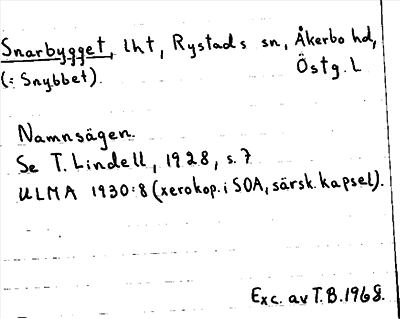 Snarbygget, lht, Rystads sn, Åkerbo hd,
(: Snybbet). Östg. L
Namnsägen.
Se T. Lindell, 1928, s. 7
ULMA 1930:8 (xerokop. i SOA, särsk. kapsel).
Exc. av T.B. 1968.